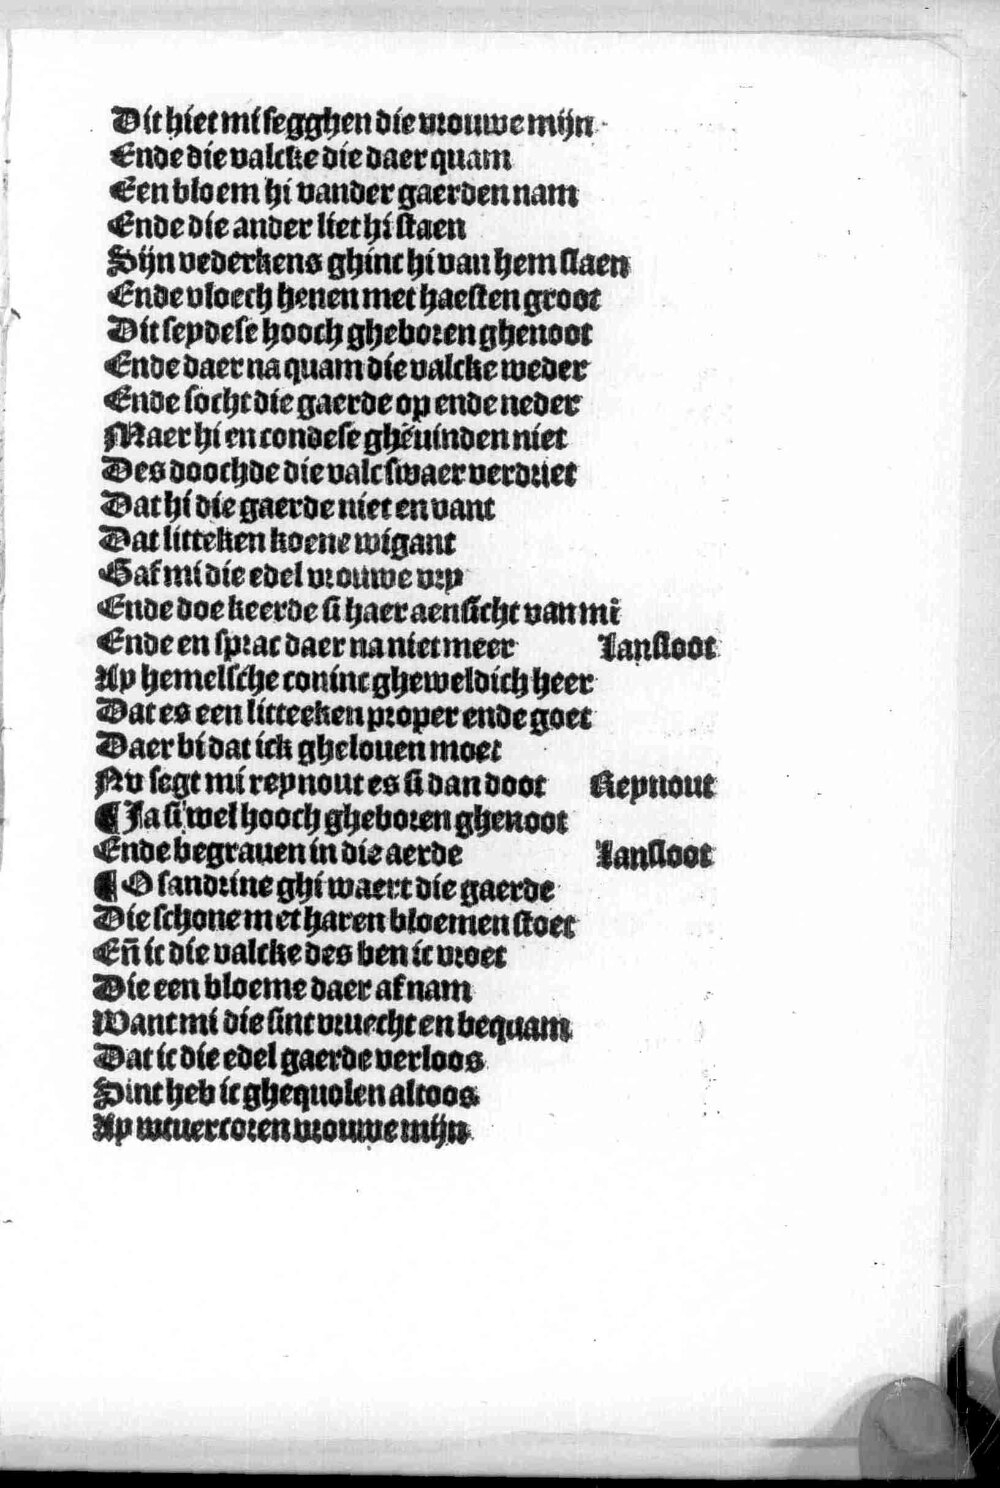 Dit hiet mi segghen die vrouwe mijn
Ende die valcke die daer quam
Een bloem hi vander gaerden nam
Ende die ander liet hi staen
Sijn vederkens ghinc hi van hem slaen
Ende vloech henen met haesten groot
Dit seyde se hooch gheboren ghenoot
Ende daer na quam die valcke weder
Ende socht die gaerde op ende neder
Maer hi en conde se ghevinden niet
Des doochde die valc swaer verdriet
Dat hi die gaerde niet en vant
Dat litteken koene wigant
Gaf mi die edel vrouwe vry
Ende doe keerde si haer aensicht van mi
Ende en sprac daer na niet meer Lansloot
Ay hemelsche coninc gheweldich heer
Dat es een litteeken proper ende goet
Daer bi dat ick ghelouen moet
Nv segt mi reynout es si dan doot Reynout
¶ Ja si wel hooch gheboren ghenoot
Ende begrauen in die aerde Lansloot
¶ O sandrine ghi waert die gaerde
Die schone met haren bloemen stoet
Eñ ic die valcke des ben ic vroet
Die een bloeme daer af nam
Want mi die sint vruecht en bequam
Dat ic die edel gaerde verloos
Sint heb ic ghequolen altoos
Ay wtuercoren vrouwe mijn